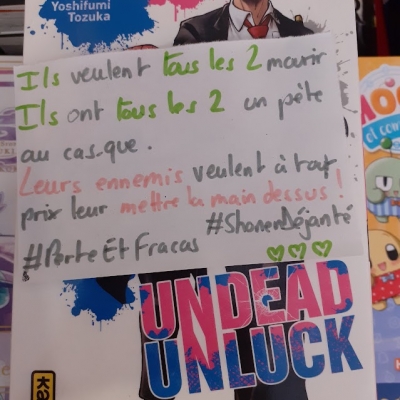 Yoshifumi
Tozuka
Ils veulent tous les 2 mourir
Ils ont tous les 2 un pète
au cas-que.
Leurs ennemis veulent à tout
prix leur mettre la main dessus !
#ShonenDéjanté
#PerteEtFracas
UNDEAD
UNLUCK